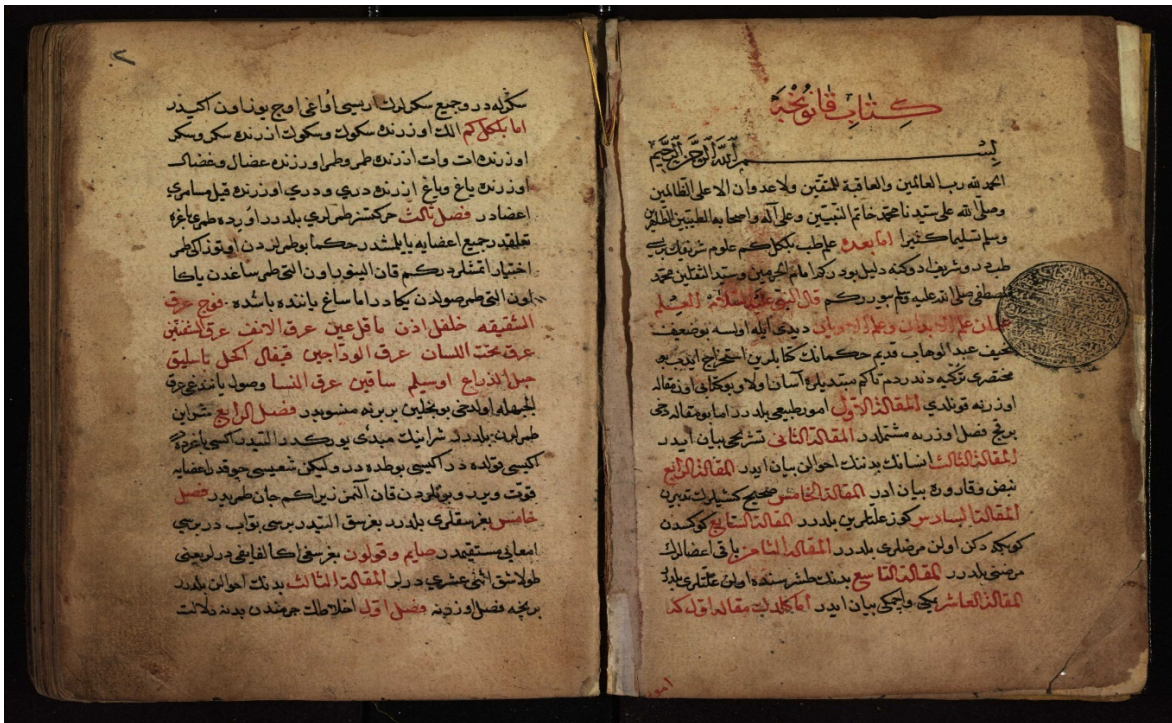 كتاب قانونجه
بسم الله الرحمن الرحيم
الحمد لله رب العالمين والعاقبة للمتقين ولا عدوان الا على الظالمين
وصلى الله على سيدنا محمد خاتم النبيين وعلى آله واصحابه الطيبين الطاهرين
وسلم تسليما كثيرا اما بعده علم طب بلكل كم علوم شريفك بري
طب در وشريف ادوكنه دليل بودر كم امام الحرمين وسيد الثقلين محمد
مصطفى صلى الله عليه وسلم بيوررکم قال النبي عليه السلام العلم
علمان علم الابدان وعلم الاديان ديدى ايله اولسه بو ضعيف
نحيف عبد الوهاب قديم حكمانك كتابلرين استخراج ايدب بو
مختصرى تركيه دندردم تاكم مبتديلره آسان اولا وبو كتابى اون مقاله
اوزرنه قونلدى المقالة الاول امور طبيعى بلدرر اما بو مقاله دخى
برنج فصل اوزره مشتملدر المقالة الثانى تشريحى بيان ايدر
المقالة الثالث انسانك بدننك احوالن بيان ايدر المقالة الرابع
نبض وقاروره بيان ادر المقالة الخامس صحيح كشيلرك تدبيرن
المقالة السادس كوز علتلرين بلدرر المقالة السابع كوكسدن
كوبكه دكن اولن مرضلرى بلدرر المقالة الثامن باقى اعضانك
مرضنى بلدرر المقالة التاسع بدنك طشرسنده اولن علتلرى بلدرر
المقالة العاشر يمكى واجمكى بيان ايدر اما كلدك مقاله اول كه
امور
٢
سكوله در وجميع سكوكلرك اريسى اوفاغى اوج يوز اون اكيدر
اما بلكل كم الك اوزرنده سكوك وسكوك ازرنده سكر وسكر
اوزرنده ات وات ازرنده طمر وطمر اوزرنده عضال وعضاك
اوزرنده ياغ وياغ ازرنده درى ودرى اوزرنده قيل مسامرى
اعضادر فصل ثالث حركتسز طمرلرى بلدرر اورده طمرى باغره
تعلقدر جميع اعضايه يايلمشدر حكما بو طمرلردن اوتوز اكى طمر
اختيار اتمشلردركم قان الينور اون التى طمر ساغدن ياكا
اون التى طمر صولدن يكادر اما ساغ ياننده باشده فوج عرق
الشقيقه خلف اذن ماق العين عرق الانف عرق الشفتين
عرق تحت اللسان عرق الوداجين قيفال اكحل باسليق
حبل الذراع اوسيلم ساقين عرق النسا وصول يانندغى عرق
الجبهله اولدخى بونجلين بر برنه منسوبدر فصل الرابع شراين
طمرلرن بلدرر شرايينك مبدئى يوركدر التيدر اكسى باغرده
اكيسى قولده در اكيسى بوطده در وليكن شعبيسى جوقدر اعضايه
قوت ويرر وبونلردن قان آلمن زيرا كم جان طمريدر فصل
خامس بغرسقلرى بلدرر بغرسق التيدر برسى بواب در برى
امعاى مستقيمدر صايم وقولون بغرسغى اكا الفايقى درلر يعنى
طولاشق اثنى عشرى درلر المقالة الثالث بدنك احوالن بلدرر
برنجه فصل اوزرينه فصل اول اخلاطك جرمندن بدنه دلالت